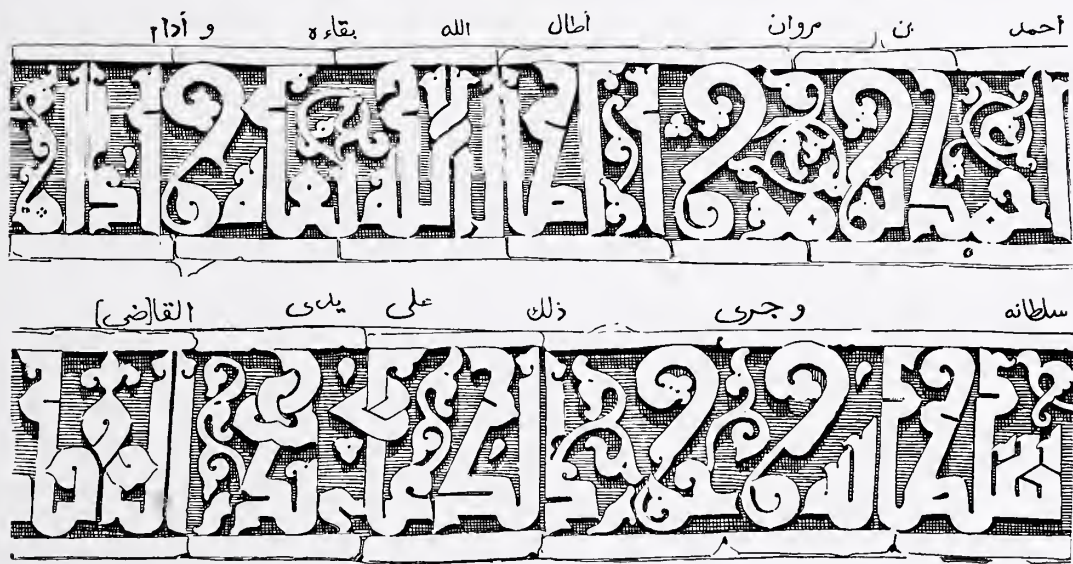 أحمد بن مروان أطال الله بقاءه و أدام
سلطانه و جرى ذلك على يدى القا[ضى]